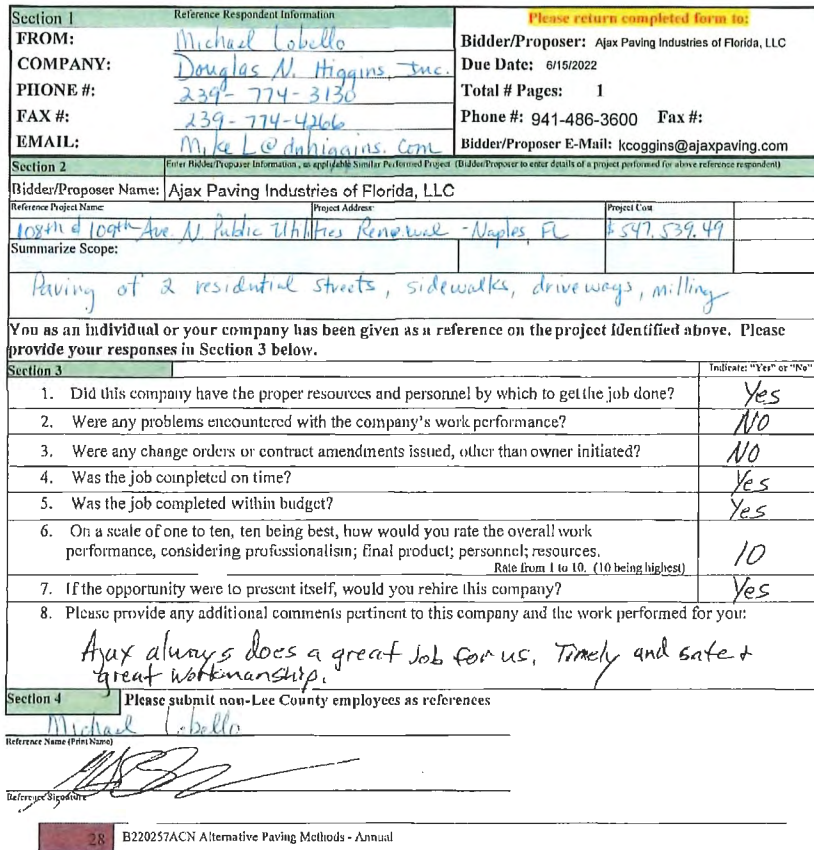 Section 1 Reference Respondent Information
Please return completed form to:
FROM: Michael Lobello
COMPANY: Douglas N. Higgins, Inc.
PHONE #: 239-774-3130
FAX #: 239-774-4266
EMAIL: MikeL@dnhiggins.com
Bidder/Proposer: Ajax Paving Industries of Florida, LLC
Due Date: 6/15/2022
Total # Pages: 1
Phone #: 941-486-3600 Fax #:
Bidder/Proposer E-Mail: kcoggins@ajaxpaving.com
Section 2 Enter Bidder/Proposer Information, as applicable Similar Performed Project (Bidder/Proposer to enter details of a project performed for above reference respondent)
Bidder/Proposer Name: Ajax Paving Industries of Florida, LLC
Reference Project Name: Project Address: Project Cost
108th & 109th Ave. N. Public Utilities Renewal - Naples, FL $547,539.49
Summarize Scope:
Paving of 2 residential streets, sidewalks, driveways, milling
You as an individual or your company has been given as a reference on the project identified above. Please
provide your responses in Section 3 below.
Section 3 Indicate: "Yes" or "No"
1. Did this company have the proper resources and personnel by which to get the job done? Yes
2. Were any problems encountered with the company's work performance? NO
3. Were any change orders or contract amendments issued, other than owner initiated? NO
4. Was the job completed on time? Yes
5. Was the job completed within budget? Yes
6. On a scale of one to ten, ten being best, how would you rate the overall work
performance, considering professionalism; final product; personnel; resources. 10
Rate from 1 to 10. (10 being highest)
7. If the opportunity were to present itself, would you rehire this company? Yes
8. Please provide any additional comments pertinent to this company and the work performed for you:
Ajax always does a great Job for us, Timely and safe +
great workmanship.
Section 4 Please submit non-Lee County employees as references
Michael Lobello
Reference Name (Print Name)
Reference Signature
28 B220257ACN Alternative Paving Methods - Annual